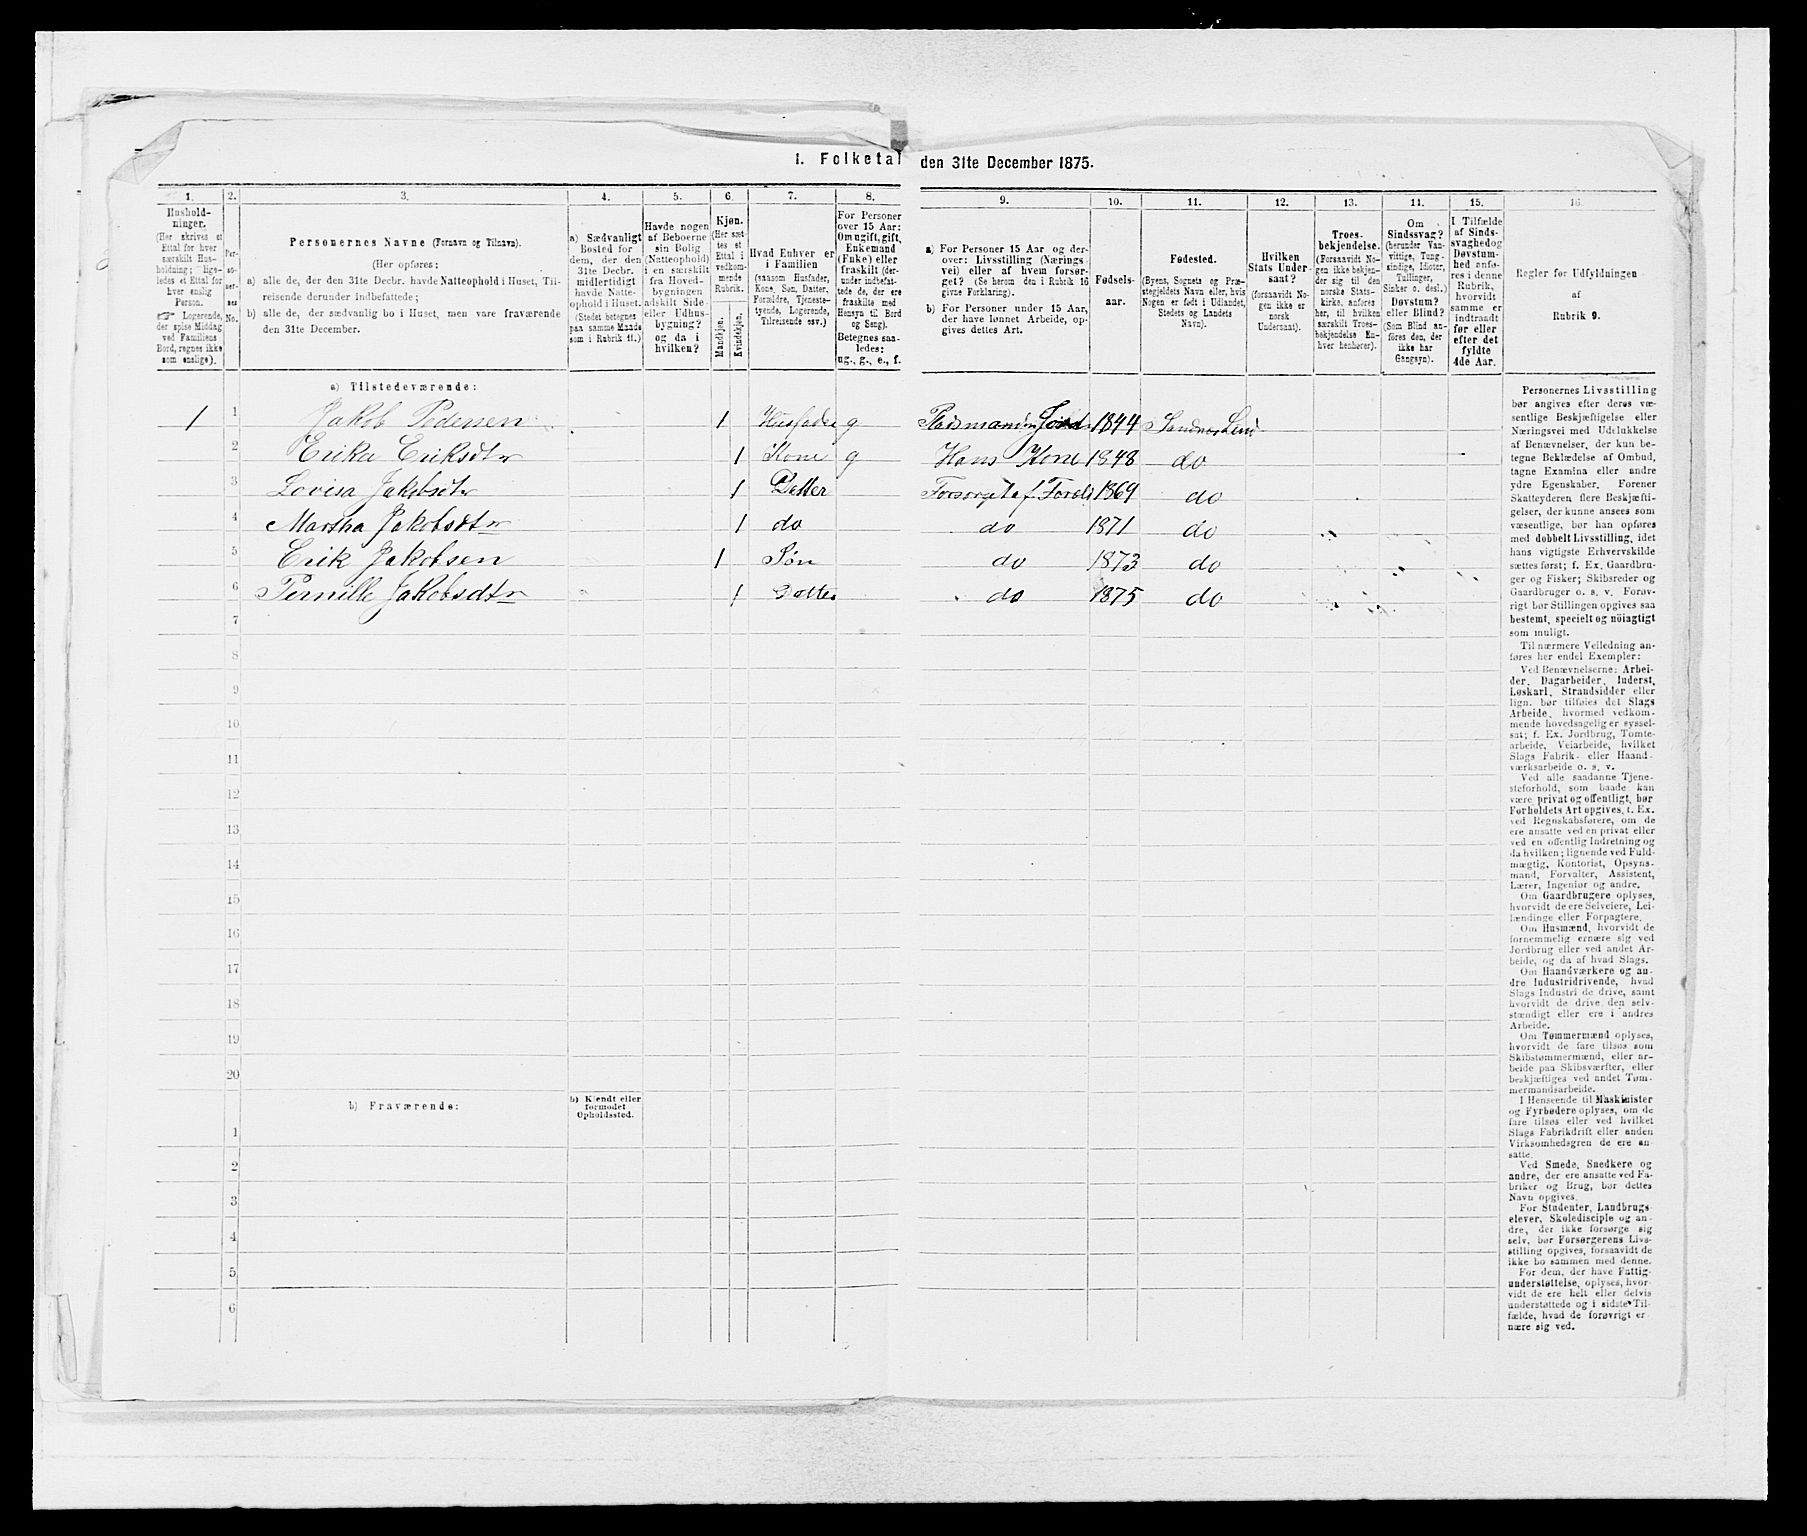 1. Folketal den 31te December 1875.
1. 2. 3. 4. 5. 6. 7. 8. 9. 10. 11. 12. 13. 14. 15. 16.
Hushold-
ninger.
(Her skrives et
Ettal for hver
særskilt Hus-
holdning; lige-
ledes et Ettal for
hver enslig
Person.
Logerende,
der spise Middag
ved Familiens
Bord, regnes ikke
som enslige).
Per-
so-
ner-
nes
No.
Personernes Navne (Fornavn og Tilnavn).
(Her opføres:
a) alle de, der den 31te Decbr. havde Natteophold i Huset, Til-
reisende derunder indbefattede;
b) alle de, der sædvanlig bo i Huset, men vare fraværende
den 31te December.
a) Sædvanligt
Bosted for
dem, der den
31te Decbr.
midlertidigt
havde Natte-
ophold i Huset.
(Stedet betegnes
paa samme Maade
som i Rubrik 11.)
Havde nogen
af Beboerne
sin Bolig
(Natteophold)
i en særskilt
fra Hoved-
bygningen
adskilt Side-
eller Udhus-
bygning?
og da i
hvilken?
Kjøn.
(Her sæt-
tes et
Ettal i
vedkom-
mende
Rubrik.
Mandkjøn.
Kvindekjøn.
Hvad Enhver er
i Familien
(saasom Husfader,
Kone, Søn, Datter,
Forældre, Tjeneste-
tyende, Logerende,
Tilreisende osv.)
For Personer
over 15 Aar:
Om ugift, gift,
Enkemand
(Enke) eller
fraskilt (der-
under indbefat-
tede de, der ere
fraskilte med
Hensyn til Bord
og Seng).
Betegnes saa-
ledes:
ug., g., e., f.
a) For Personer 15 Aar og der-
over: Livsstilling (Nærings-
vei) eller af hvem forsør-
get? (Se herom den i Rubrik 16
givne Forklaring).
b) For Personer under 15 Aar,
der have lønnet Arbeide, op-
gives dettes Art.
Fødsels-
aar.
Fødested.
(Byens, Sognets og Præ-
stegjeldets Navn eller, hvis
Nogen er født i Udlandet,
Stedets og Landets
Navn).
Hvilken
Stats Under-
saat?
(forsaavidt No-
gen ikke er
norsk
Undersaat).
Troes-
bekjendelse.
(Forsaavidt Nogen
ikke bekjen-
der sig til den
norske Stats-
kirke, anføres
her, til hvilken
særskilt Troes-
bekjendelse En-
hver henhører).
Om
Sindssvag?
(herunder Van-
vittige, Tung-
sindige, Idioter,
Tullinger,
Sinker o. desl.)
Døvstum?
eller Blind?
(Som Blind an-
føres den, der
ikke har
Gangsyn).
I Tilfælde
af Sinds-
svaghed og
Døvstum-
hed anfø-
res i denne
Rubrik,
hvorvidt
samme er
indtraadt
før eller
efter det
fyldte
4de Aar.
Regler for Udfyldningen
af
Rubrik 9.
a) Tilstedeværende:
1 1 Jakob Pedersen 1 Husfader g 1844
2 Erika Eriksdtr 1 Kone g Hans Kone 1848 do
3 Lovisa Jakobsdtr 1 Datter Forsørget af 1869 do
4 Martha Jakobsdtr 1 do do 1871 do
5 Erik Jakobsen 1 Søn do 1873 do
6 Pernille Jakobsdtr 1 Datter do 1875 do
7
8
9
10
11
12
13
14
15
16
17
18
19
20
b) Fraværende:
b) Kjendt eller
formodet
Opholdssted.
1
2
3
4
5
6
Personernes Livsstilling
bør angives efter deres væ-
sentlige Beskjæftigelse eller
Næringsvei med Udelukkelse
af Benævnelser, der kun be-
tegne Beklædelse af Ombud,
tagne Examina eller andre
ydre Egenskaber. Forener
Skatteyderen flere Beskjæfti-
gelser, der kunne ansees som
væsentlige, bør han opføres
med dobbelt Livsstilling, idet
hans vigtigste Erhvervskilde
sættes først; f. Ex. Gaardbru-
ger og Fisker; Skibsreder og
Gaardbruger o. s. v. Forøv-
rigt bør Stillingen opgives saa
bestemt, specielt og nöiagtigt
som muligt.
Til nærmere Veiledning an-
føres her endel Exempler:
Ved Benævnelserne: Arbei-
der, Dagarbeider, Inderst,
Løskarl, Strandsidder eller
lign. bør tilføies det Slags
Arbeide, hvormed vedkom-
mende hovedsagelig er syssel-
sat; f. Ex. Jordbrug, Tomte-
arbeide, Veiarbeide, hvilket
Slags Fabrik- eller Haand-
værksarbeide o. s. v.
Ved alle saadanne Tjene-
steforhold, som baade kan
være privat og offentligt, bør
Forholdets Art opgives, t. Ex.
ved Regnskabsførere, om de
ere ansatte ved en privat eller
ved en offentlig Indretning og
da hvilken; lignende ved Fuld-
mægtig, Kontorist, Opsyns-
mand, Forvalter, Assistent,
Lærer, Ingeniør og andre.
Om Gaardbrugere oplyses,
hvorvidt de ere Selveiere, Lei-
lændinge eller Forpagtere.
Om Husmænd, hvorvidt de
fornemmelig ernære sig ved
Jordbrug eller ved andet Ar-
beide, og da af hvad Slags.
Om Haandværkere og an-
dre Industridrivende, hvad
Slags Industri de drive, samt
hvorvidt de drive den selv-
stændigt eller ere i andres
Arbeide.
Om Tømmermænd oplyses,
hvorvidt de fare tilsøs som
Skibstømmermænd, eller ar-
beide paa Skibsværfter, eller
beskjæftiges ved andet Tøm-
mermandsarbeide.
I Henseende til Maskinister
og Fyrbødere oplyses, om de
fare tilsøs eller ved hvilket
Slags Fabrikdrift eller anden
Virksomhedsgren de ere an-
satte.
Ved Smede, Snedkere og
andre, der ere ansatte ved Fa-
briker og Brug, bør dettes
Navn opgives.
For Studenter, Landbrugs-
elever, Skoledisciple og an-
dre, der ikke forsørge sig
selv, bør Forsørgerens Livs-
stilling opgives, forsaavidt de
ikke bo sammen med denne.
For dem, der have Fattig-
understøttelse, oplyses, hvor-
vidt de ere helt eller delvis
understøttede og i sidste Til-
fælde, hvad de forøvrigt er-
nære sig ved.